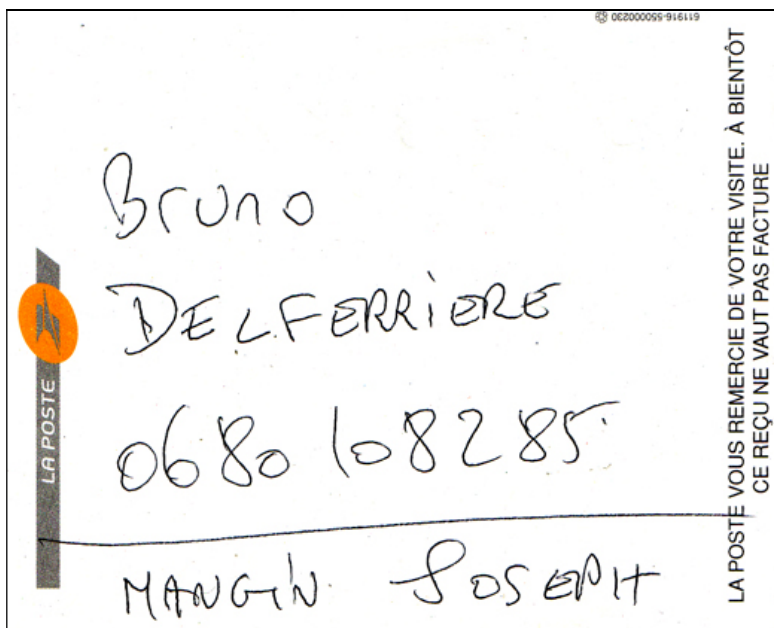 611916-550000230
Bruno
DELFERRIERE
0680108285
MANGIN JOSEPH
LA POSTE
LA POSTE VOUS REMERCIE DE VOTRE VISITE. À BIENTÔT
CE REÇU NE VAUT PAS FACTURE